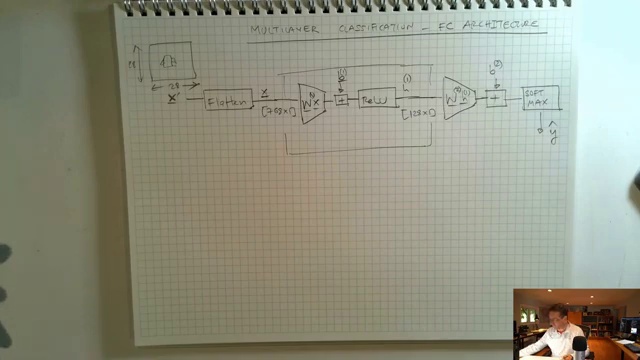 MULTILAYER CLASSIFICATION - FC ARCHITECTURE
28
28
x'
Flatten
x
W x
b(1)
+
ReLU
h(1)
b(2)
+
SOFT
MAX
ŷ